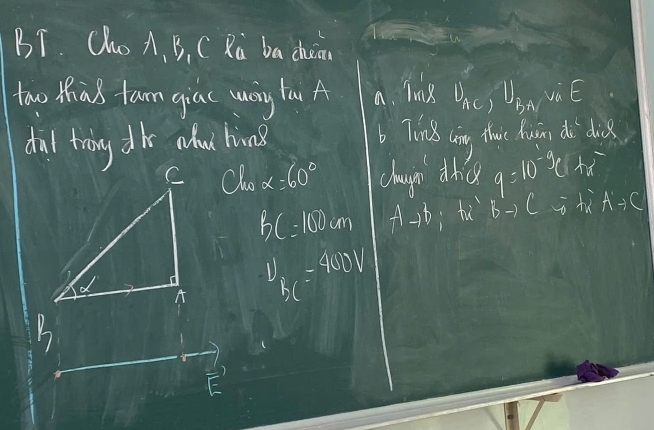 BT. Cho A, B, C là ba điểm
tạo thành tam giác vuông tại A
đặt trong đtr như hình
Cho α = 60°
BC = 100 cm
U_BC = 400V
C
α
A
B
E
a. Tính U_AC, U_BA và E
b Tính công thực hiện để dịch
chuyển đtích q = 10⁻⁹C từ
A→B; từ B→C và từ A→C